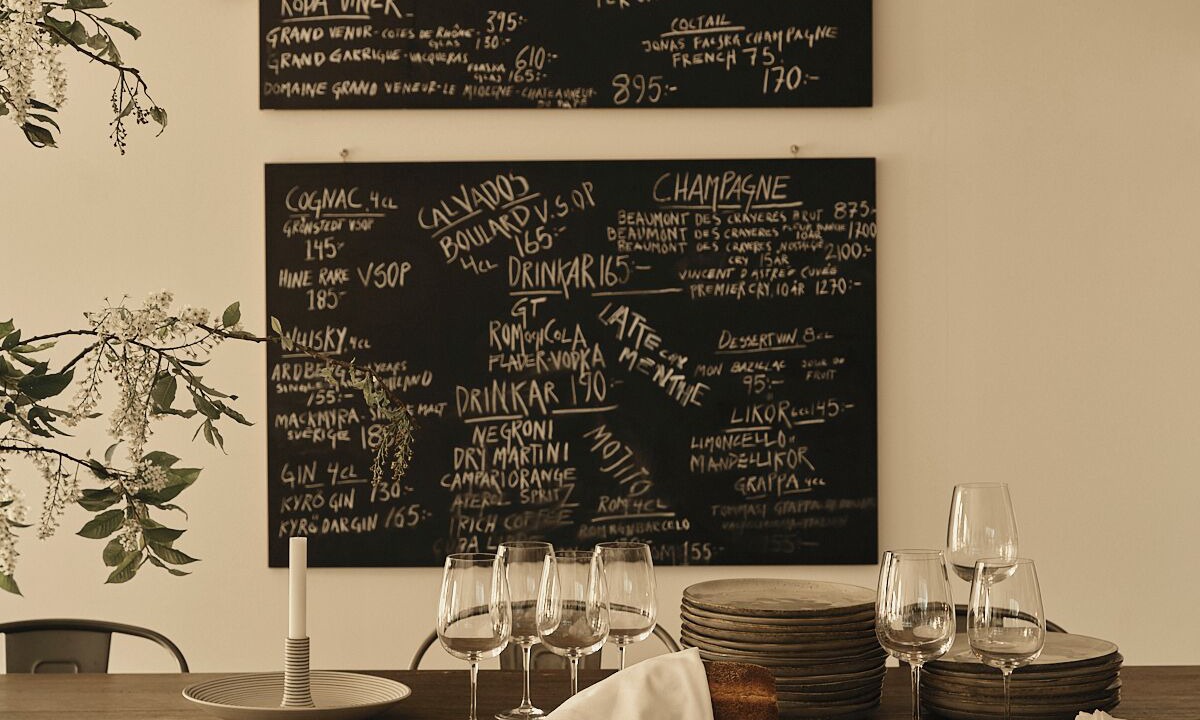 RÖDA VINER
GRAND VENUR-COTES DE RHÔNE- 395:-
GLAS 130:-
GRAND GARRIGUE-VACQUERAS
FLASKA 610:-
GLAS 165:-
DOMAINE GRAND VENEUR-LE MIOCENE-CHATEAUNEUF-
DU PAPE 895:-
COCTAIL
JONAS FALSKA CHAMPAGNE
FRENCH 75
170:-
COGNAC. 4CL
GRÖNSTEDT VSOP
145-
HINE RARE VSOP
185-
WHISKY. 4CL
ARDBERG YEARS
SINGLE
155:-
MACKMYRA- MALT
SVERIGE 18
GIN 4CL
KYRÖ GIN 130:-
KYRÖ DARGIN 165:-
CALVADOS
BOULARD V.SOP
4CL 165:-
DRINKAR 165:-
GT
ROM och COLA
FLÄDER-VODKA
LATTE
MENTHE
DRINKAR 190:-
NEGRONI
DRY MARTINI
CAMPARI ORANGE
APEROL SPRITZ
RICH COFFEE
CUBA
MOJITO
ROM 4CL
ROM BARCELO
155:-
CHAMPAGNE
BEAUMONT DES CRAYERES BRUT 875:-
BEAUMONT DES CRAYERES FLEUR BLANCHE 10ÅR 1700
BEAUMONT DES CRAYERES, NOSTALGIE 2100:-
CRY 15ÅR
VINCENT D'ASTRÉE CUVÉE
PREMIER CRY, 10 ÅR 1270:-
DESSERTVIN 8CL
MON BAZILLAC JOUR DU
FRUIT
95:-
LIKÖR 4CL 145:-
LIMONCELLO
MANDELLIKÖR
GRAPPA 4CL
TOMMASI GRAPPA
155:-